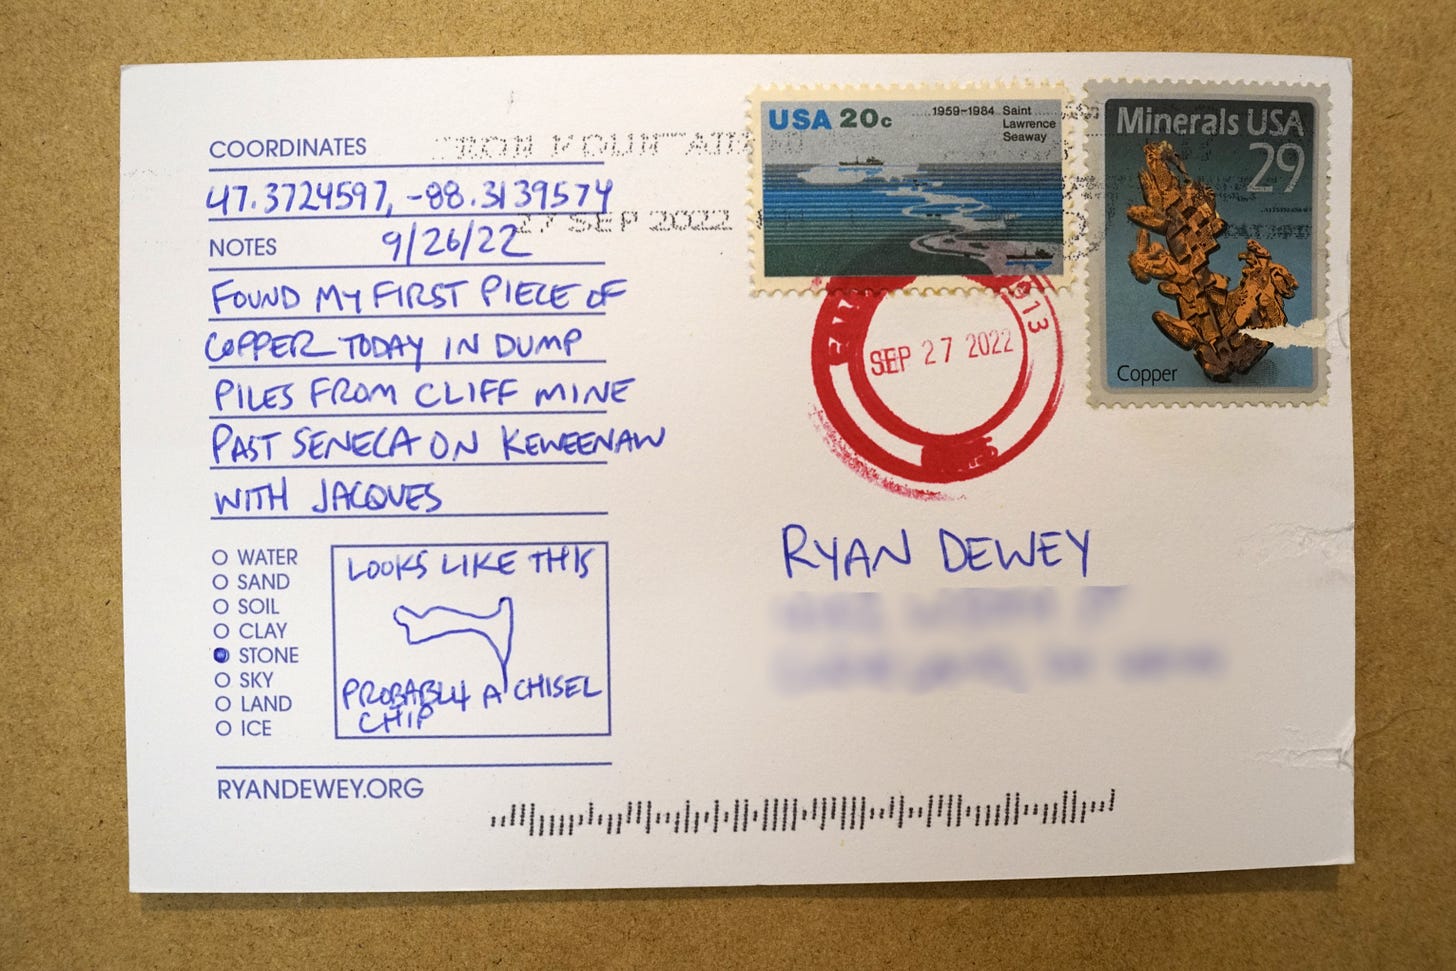 COORDINATES
47.3724597, -88.3139574
NOTES 9/26/22
FOUND MY FIRST PIECE OF
COPPER TODAY IN DUMP
PILES FROM CLIFF MINE
PAST SENECA ON KEWEENAW
WITH JACQUES
WATER
SAND
SOIL
CLAY
STONE
SKY
LAND
ICE
LOOKS LIKE THIS
PROBABLY A CHISEL
CHIP
RYANDEWEY.ORG
IRON MOUNTAIN
27 SEP 2022
USA 20c
1959-1984 Saint
Lawrence
Seaway
Minerals USA
29
Copper
SEP 27 2022
RYAN DEWEY